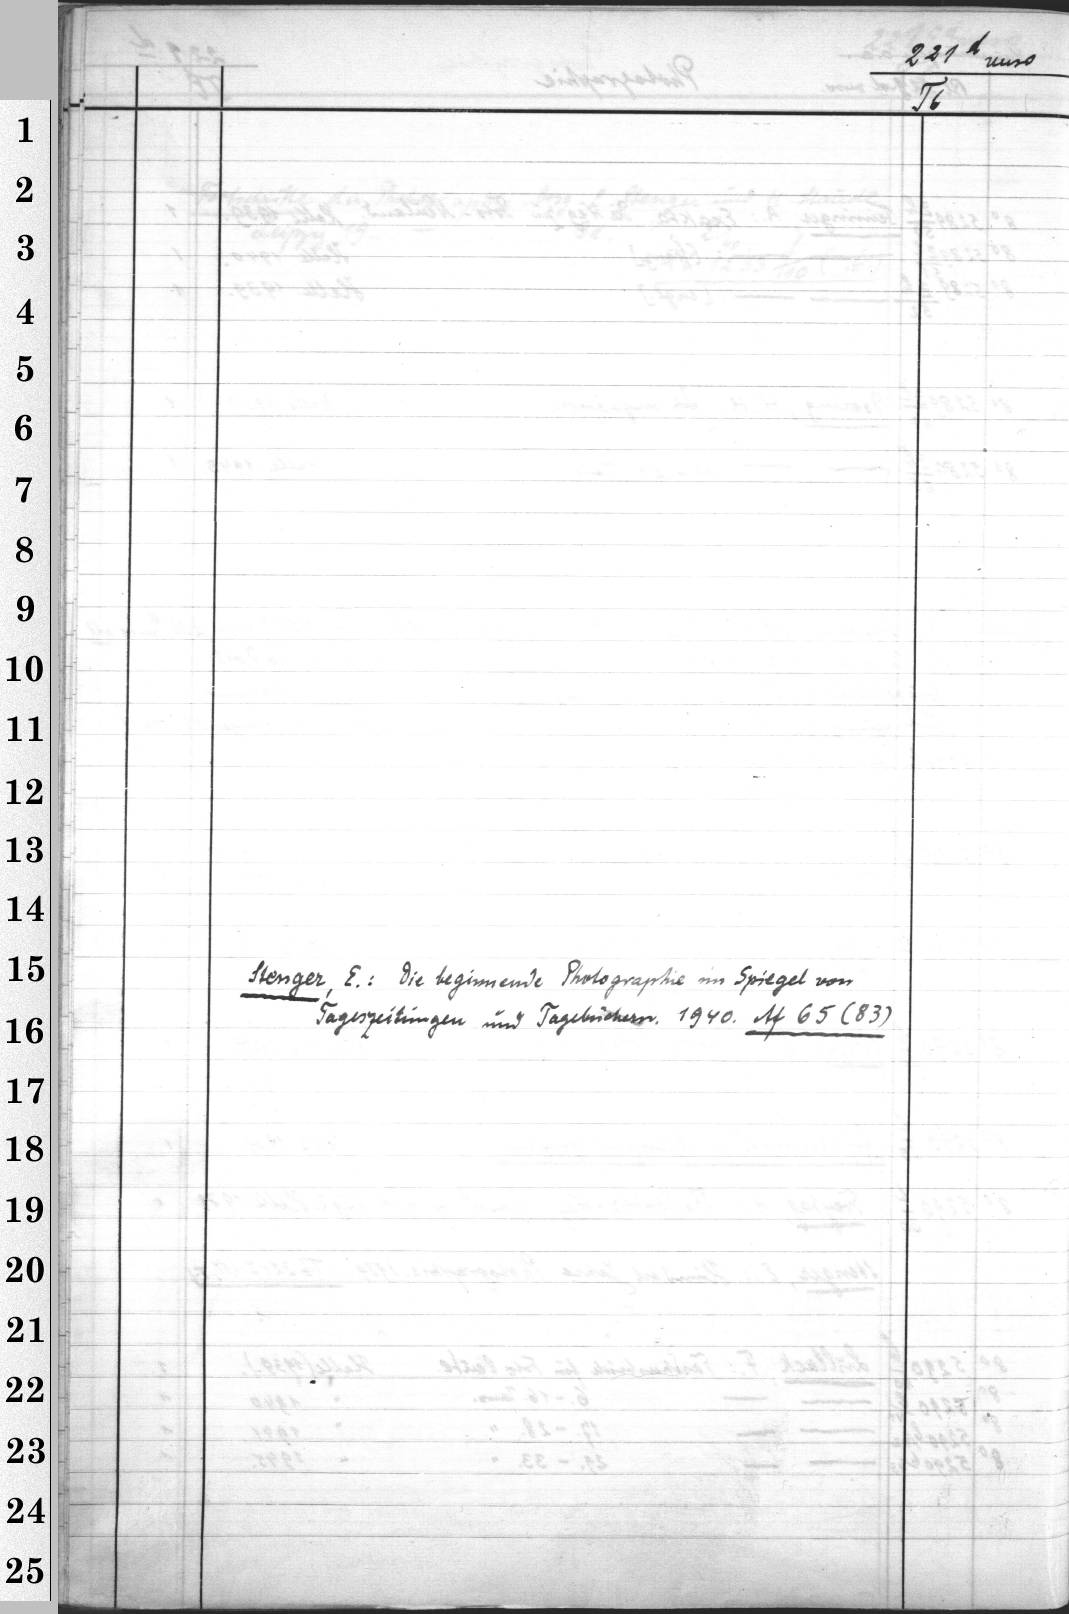 221 d verso
T6
1
2
3
4
5
6
7
8
9
10
11
12
13
14
15
Stenger, E.: Die beginnende Photographie im Spiegel von
16
Tageszeitungen und Tagebüchern. 1940. Af 65 (83)
17
18
19
20
21
22
23
24
25